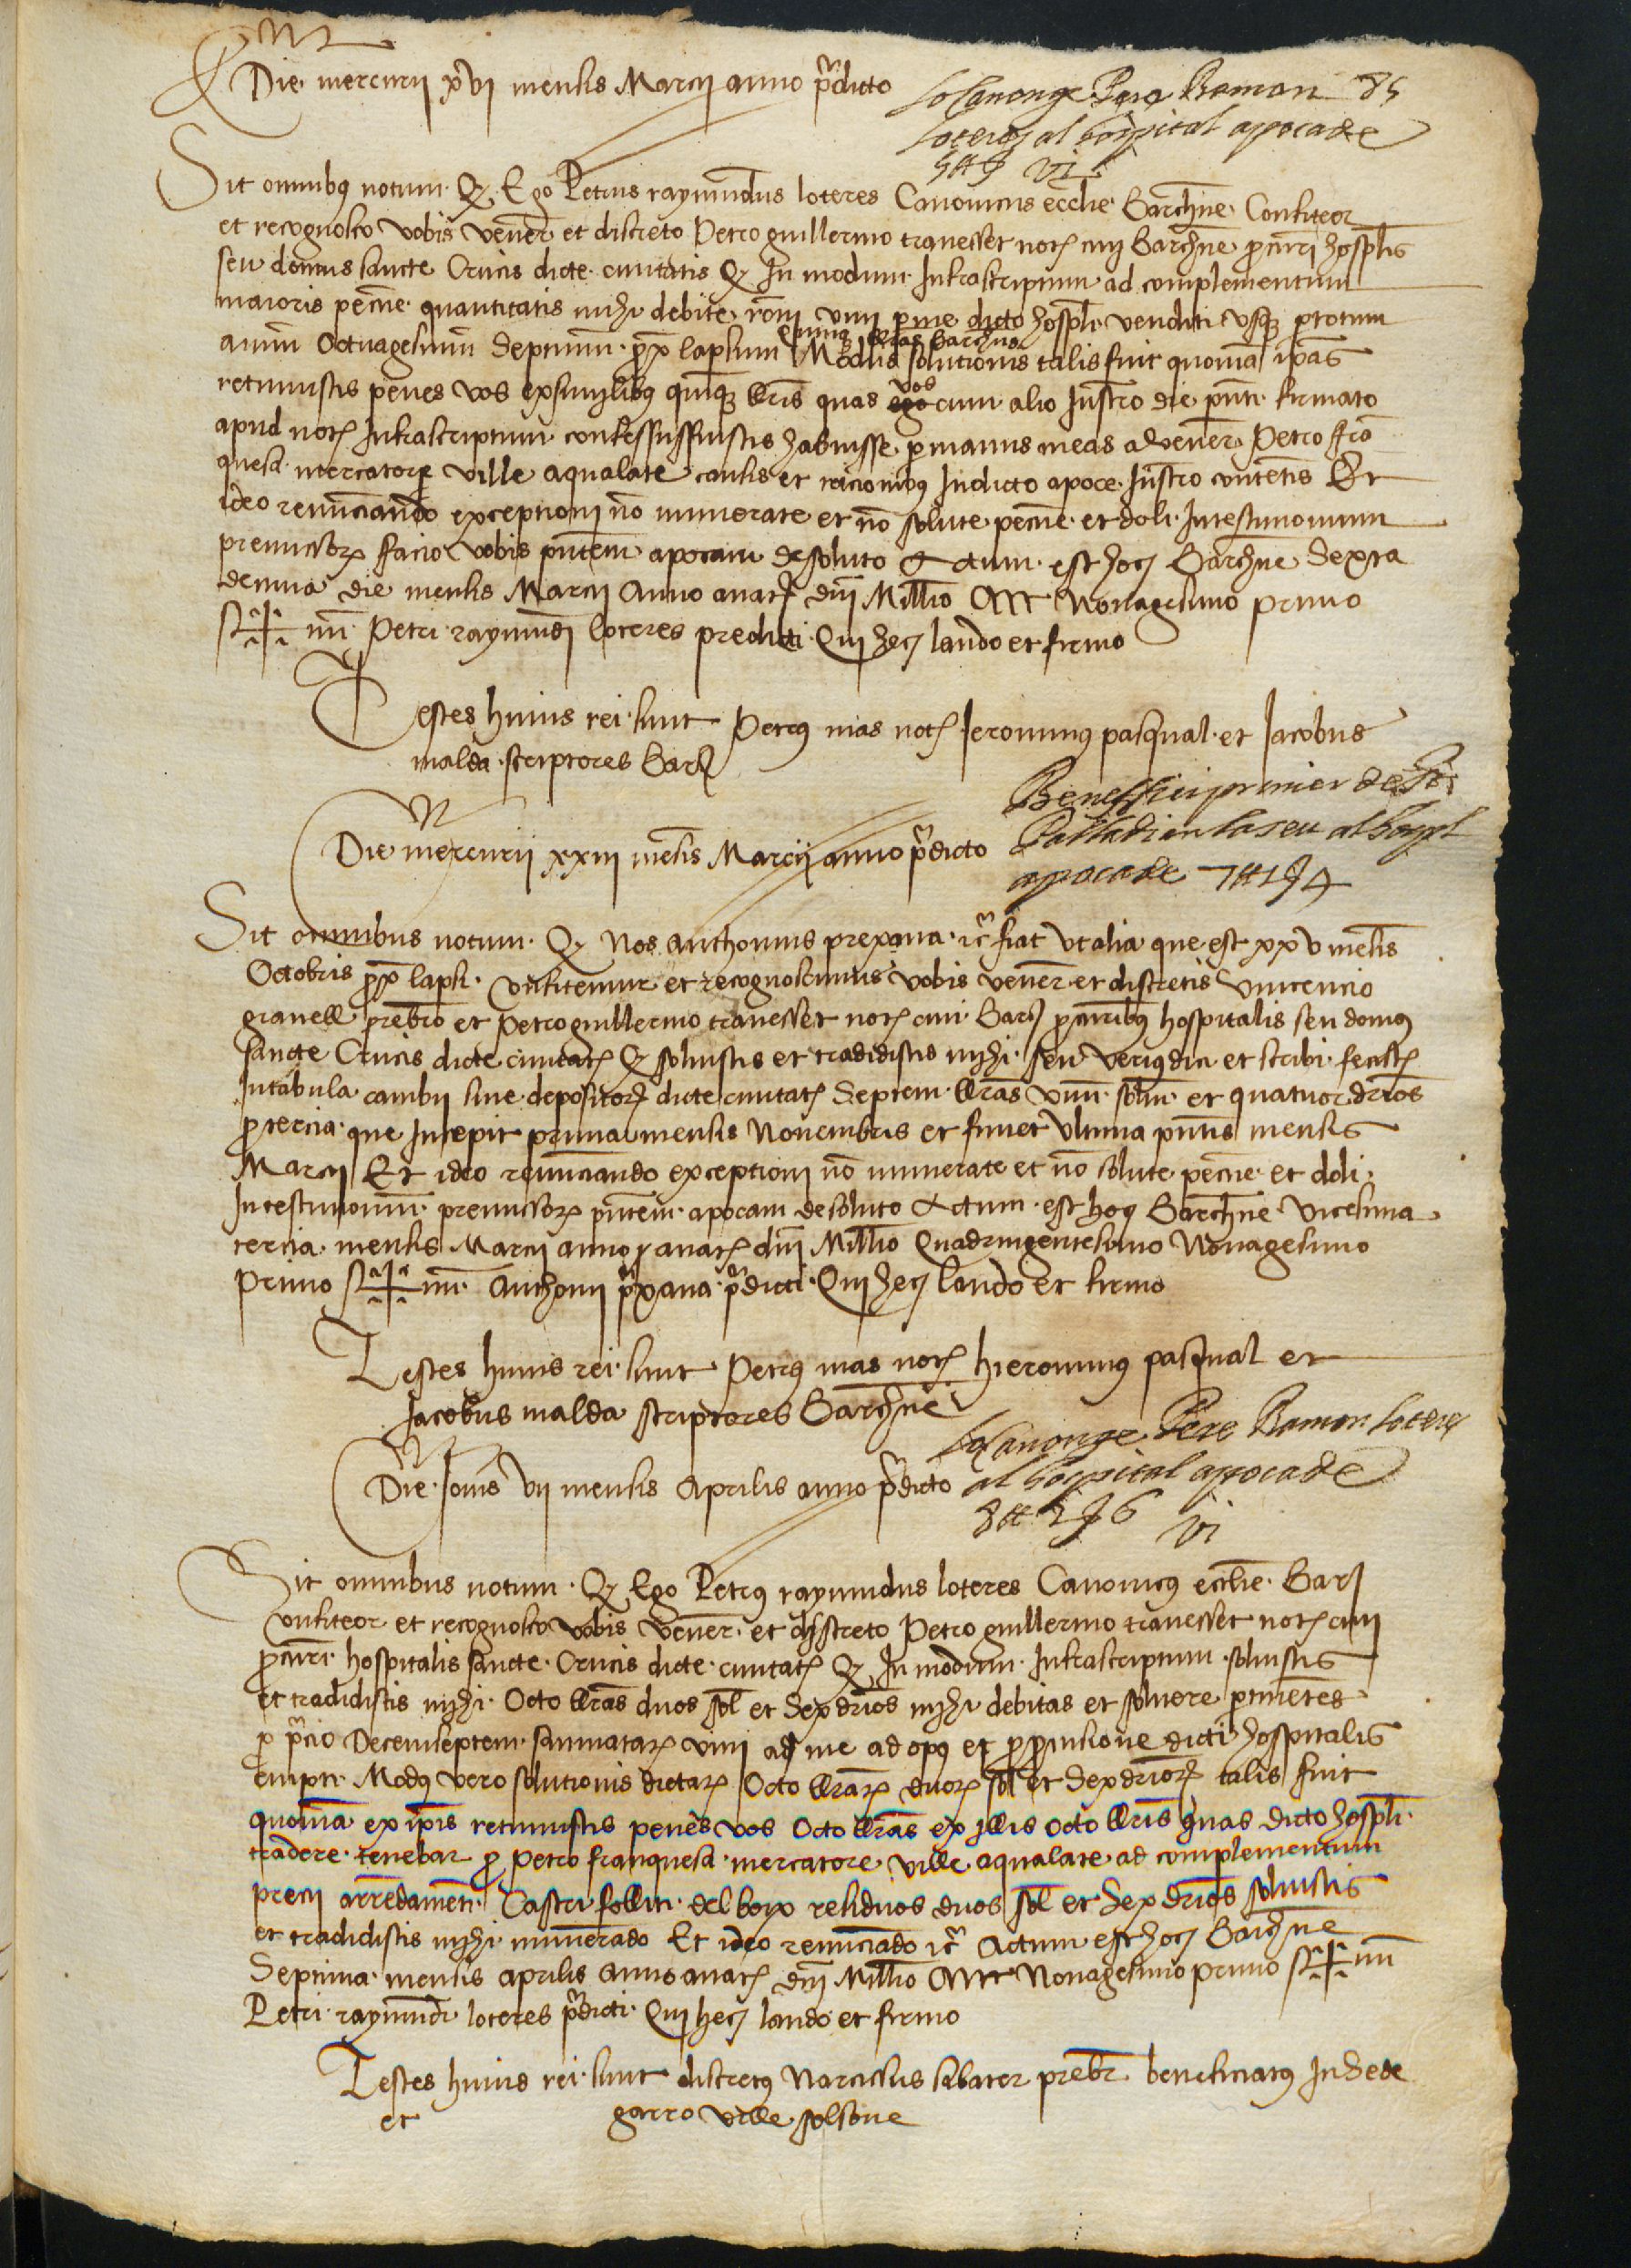 Die mercurii xvi mensis Marcii anno p̃dicto
lo Canonge Pere Ramon 85
loteres al hospital apoca de
5 ll s vi
Sit omnibus notum Q Ego Petrus raymundus loteres Canonicus ecclie Barchne Confiteor
et recognosco vobis vener et discreto Petro guillermo travesset not civi Barchne procuri hosplis
seu domus sancte Crucis dicte civitatis Q In modum Infrascriptum ad complementum
maioris pecnie quantitatis mihi debite rone vini per me dicto hospli venditi usq per totum
annum Octuagesimum Septimum prox lapsum quinq lras Barchne Modus solutionis talis fuit quoniam ipas
retinuistis penes vos ex similibus quinq lris quas ego vos cum alio Instro die pnti firmato
apud not Infrascriptum confessus fuistis habuisse per manus meas a vener Petro fran
quesa mercatore ville aqualate causis et racionibus In dicto apoce Instro contentis Et
ideo renunciando exceptioni no numerate et no solute pecnie et doli In testimonium
premissor facio vobis pntem apocam de soluto Actum est hoc Barchne Sexta
decima die mensis Marcii Anno a nat dni Millio CCCC Nonagesimo primo
S num Petri raymundi loteres predicti Qui hec laudo et firmo
Testes huius rei sunt Petrus mas not Ieronimus pasqual et Jacobus
malda scriptores Bar
Die mercurii xxiii mensis Marcii anno p̃dicto
Beneffici primer de St
Palladi en la seu al hospl
apoca de 7 ll 1 s 4
Sit omnibus notum Q Nos anthonius prexana etc fiat ut alia que est xxv mensis
Octobris prox lapsi confitemur et recognoscimus vobis vener et discretis Vincencio
gravell prebro et Petro guillermo travesset not civi Bar procuribus hospitalis seu domus
sancte Crucis dicte civitat Q solvistis et tradidistis mihi seu verius dici et scribi fecist
In tabula cambii sive depositor dicte civitat Septem lras unum sol et quatuor drios
pro tercia que Incepit prima mensis Novembris et finiet ultima pntis mensis
Marcii Et ideo renunciando exceptioni no numerate et no solute pecnie et doli
In testimonium premissor pntem apocam de soluto Actum est hoc Barchne vicesima
tercia mensis Marcii anno a nat dni Millio Quadringentesimo Nonagesimo
primo S num Anthonii prexana p̃dicti Qui hec laudo et firmo
Testes huius rei sunt Petrus mas not hieronimus pasqual et
Jacobus malda scriptores Barchne
Die Jovis vii mensis Aprilis anno p̃dicto
lo Canonge Pere Ramon loteres
al hospital apoca de
8 ll 2 s 6 vi
Sit omnibus notum Q Ego Petrus raymundus loteres Canonicus ecclie Bar
confiteor et recognosco vobis vener et discreto Petro guillermo travesset not civi
procuri hospitalis sancte Crucis dicte civitat Q In modum Infrascriptum solvistis
et tradidistis mihi Octo lras duos sol et Sex drios mihi debitas et solvere pertinentes
pro precio Decemseptem saumatar vini a me ad opus et pro provisione dicti hospitalis
empti Modus vero solutionis dictar Octo lrar duor sol et Sex drior talis fuit
quoniam ex ipis retinuistis penes vos Octo lras ex illis octo lris quas dicto hospli
tradere tenebar pro Petro franquesa mercatore ville aqualate ad complementum
precii arredamenti Castri follit del boix residuos duos sol et Sex drios solvistis
et tradidistis mihi numerando Et ideo renunciando etc Actum est hoc Barchne
Septima mensis aprilis anno a nat dni Millio CCCC Nonagesimo primo S num
Petri raymundi loteres p̃dicti Qui hec laudo et firmo
Testes huius rei sunt discretus Narcissus sabater prebr beneficiatus In Sede
et garro ville solsone